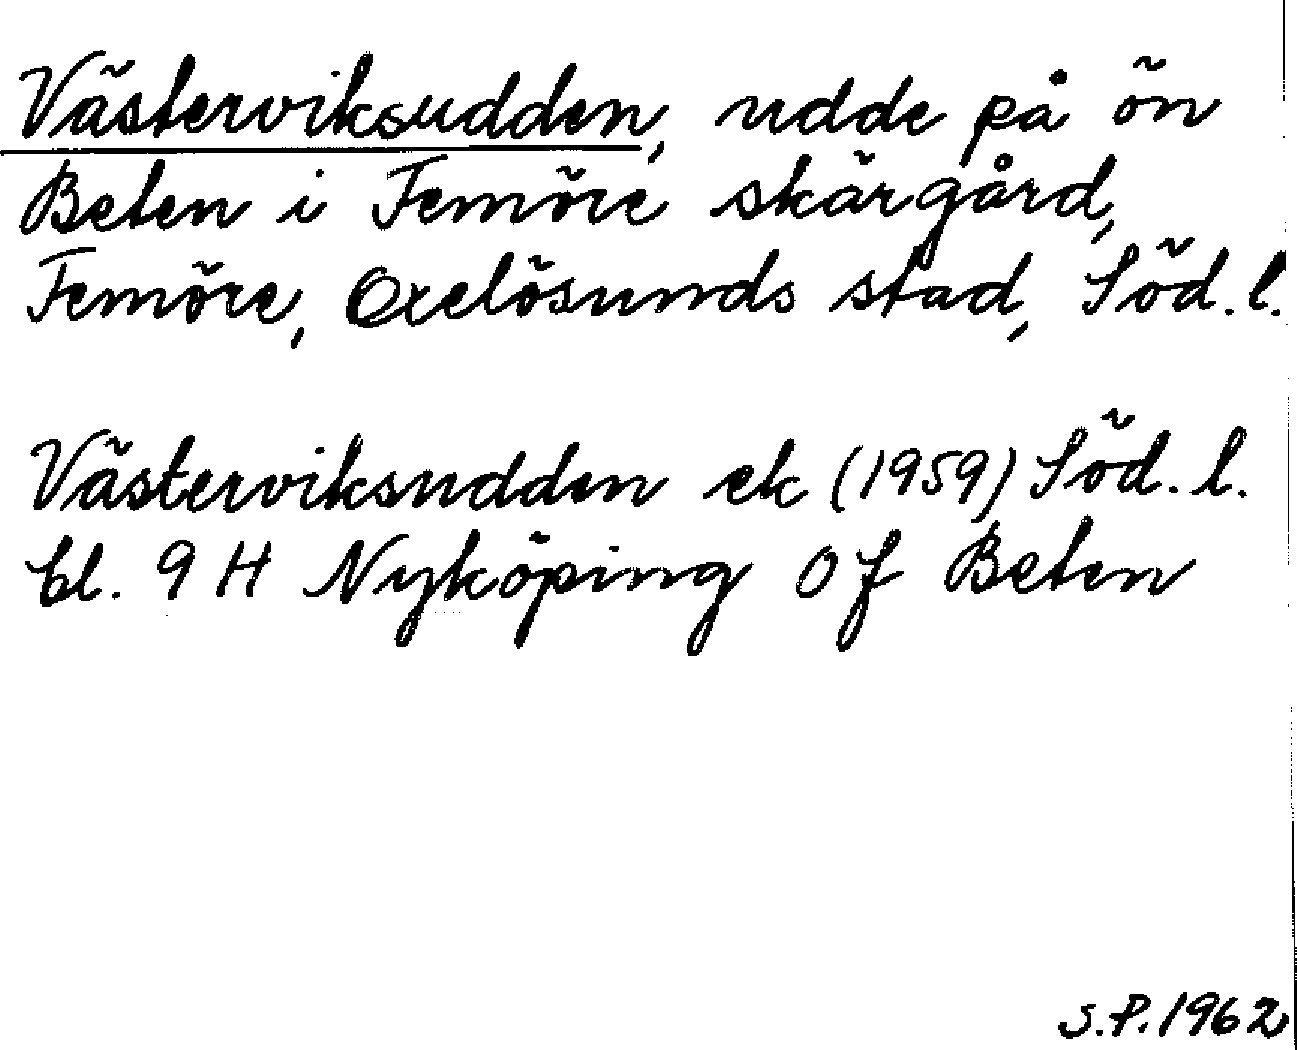 Västerviksudden, udde på ön
Beten i Femöre skärgård,
Femöre, Oxelösunds stad, Söd. l.
Västerviksudden ek (1959) Söd. l.
bl. 9 H Nyköping O f Beten
S.P. 1962